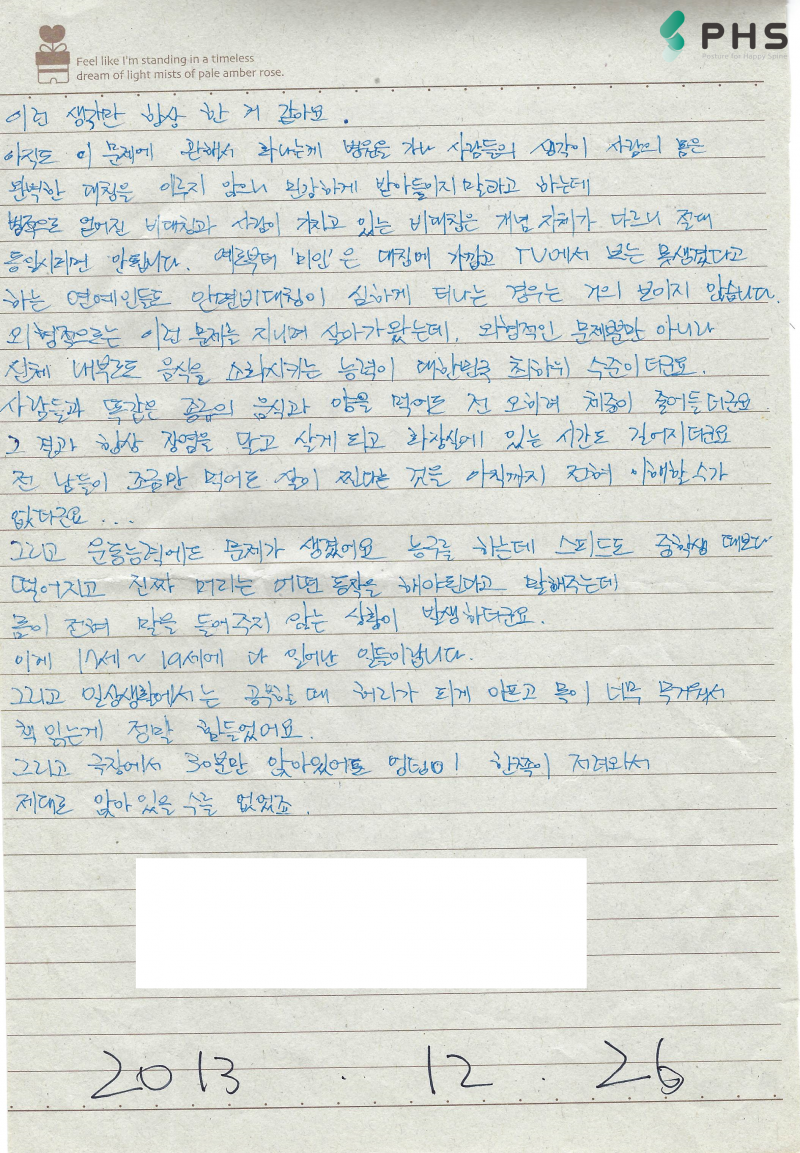 Feel like I'm standing in a timeless
dream of light mists of pale amber rose.
PHS
Posture for Happy Spine
이런 생각만 항상 한 거 같아요.
아직도 이 문제에 관해서 화나는게 병원을 가나 사람들의 생각이 사람의 몸은
완벽한 대칭을 이루지 않으니 민감하게 받아들이지말라고 하는데
병적으로 얻어진 비대칭과 사람이 가지고 있는 비대칭은 개념 자체가 다르니 절대
동일시하면 안됩니다. 예로부터 '미인'은 대칭에 가깝고 TV에서 보는 못생겼다고
하는 연예인들도 안면비대칭이 심하게 티나는 경우는 거의 보이지 않습니다.
외형적으로는 이런 문제를 지니며 살아가왔는데, 외형적인 문제뿐만 아니라
신체 내부로도 음식을 소화시키는 능력이 대한민국 최하위 수준이더군요.
사람들과 똑같은 종류의 음식과 양을 먹어도 전 오히려 체중이 줄어들더군요
그 결과 항상 장염을 달고 살게 되고 화장실에 있는 시간도 길어지더군요
전 남들이 조금만 먹어도 살이 찐다는 것을 아직까지 전혀 이해할수가
없다군요...
그리고 운동능력에도 문제가 생겼어요 농구를 하는데 스피드도 중학생 때보다
떨어지고 진짜 머리는 어떤 동작을 해야된다고 말해주는데
몸이 전혀 말을 들어주지 않는 상황이 발생하더군요.
이게 17세~19세에 다 일어난 일들이랍니다.
그리고 일상생활에서는 공부할 때 허리가 되게 아프고 목이 너무 무거워서
책 읽는게 정말 힘들었어요.
그리고 극장에서 30분만 앉아있어도 엉덩이 한쪽이 저려와서
제대로 앉아 있을 수는 없었죠.
2013 . 12 . 26